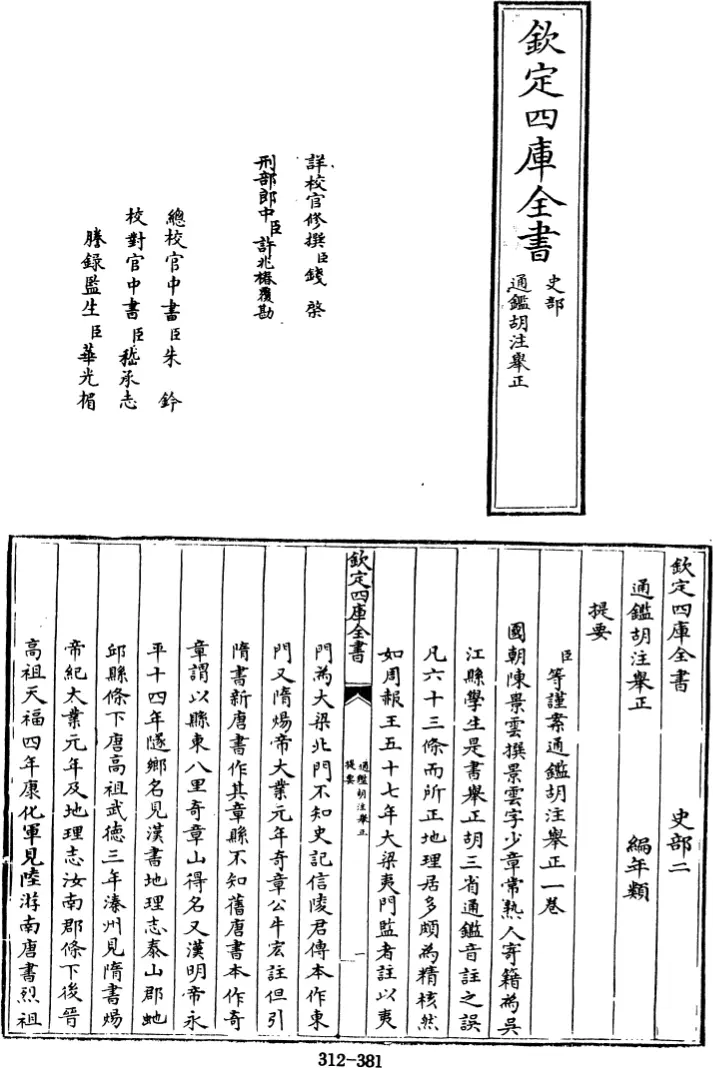 欽定四庫全書
史部
通鑑胡注舉正
詳校官修撰臣錢棨
刑部郎中臣許兆椿覆勘
總校官中書臣朱鈐
校對官中書臣嵇承志
謄錄監生臣華光楣
欽定四庫全書 史部二
通鑑胡注舉正 編年類
提要
臣等謹案通鑑胡注舉正一卷
國朝陳景雲撰景雲字少章常熟人寄籍為吳
江縣學生是書舉正胡三省通鑑音註之誤
凡六十三條而所正地理居多頗為精核然
如周報王五十七年大梁夷門監者註以夷
欽定四庫全書
通鑑胡注舉正
提要
一
門為大梁北門不知史記信陵君傳本作東
門又隋煬帝大業元年奇章公牛宏註但引
隋書新唐書作其章縣不知舊唐書本作奇
章謂以縣東八里奇章山得名又漢明帝永
平十四年隧鄉名見漢書地理志泰山郡虵
邱縣條下唐高祖武德三年溱州見隋書煬
帝紀大業元年及地理志汝南郡條下後晉
高祖天福四年康化軍見陸游南唐書烈祖
312-381